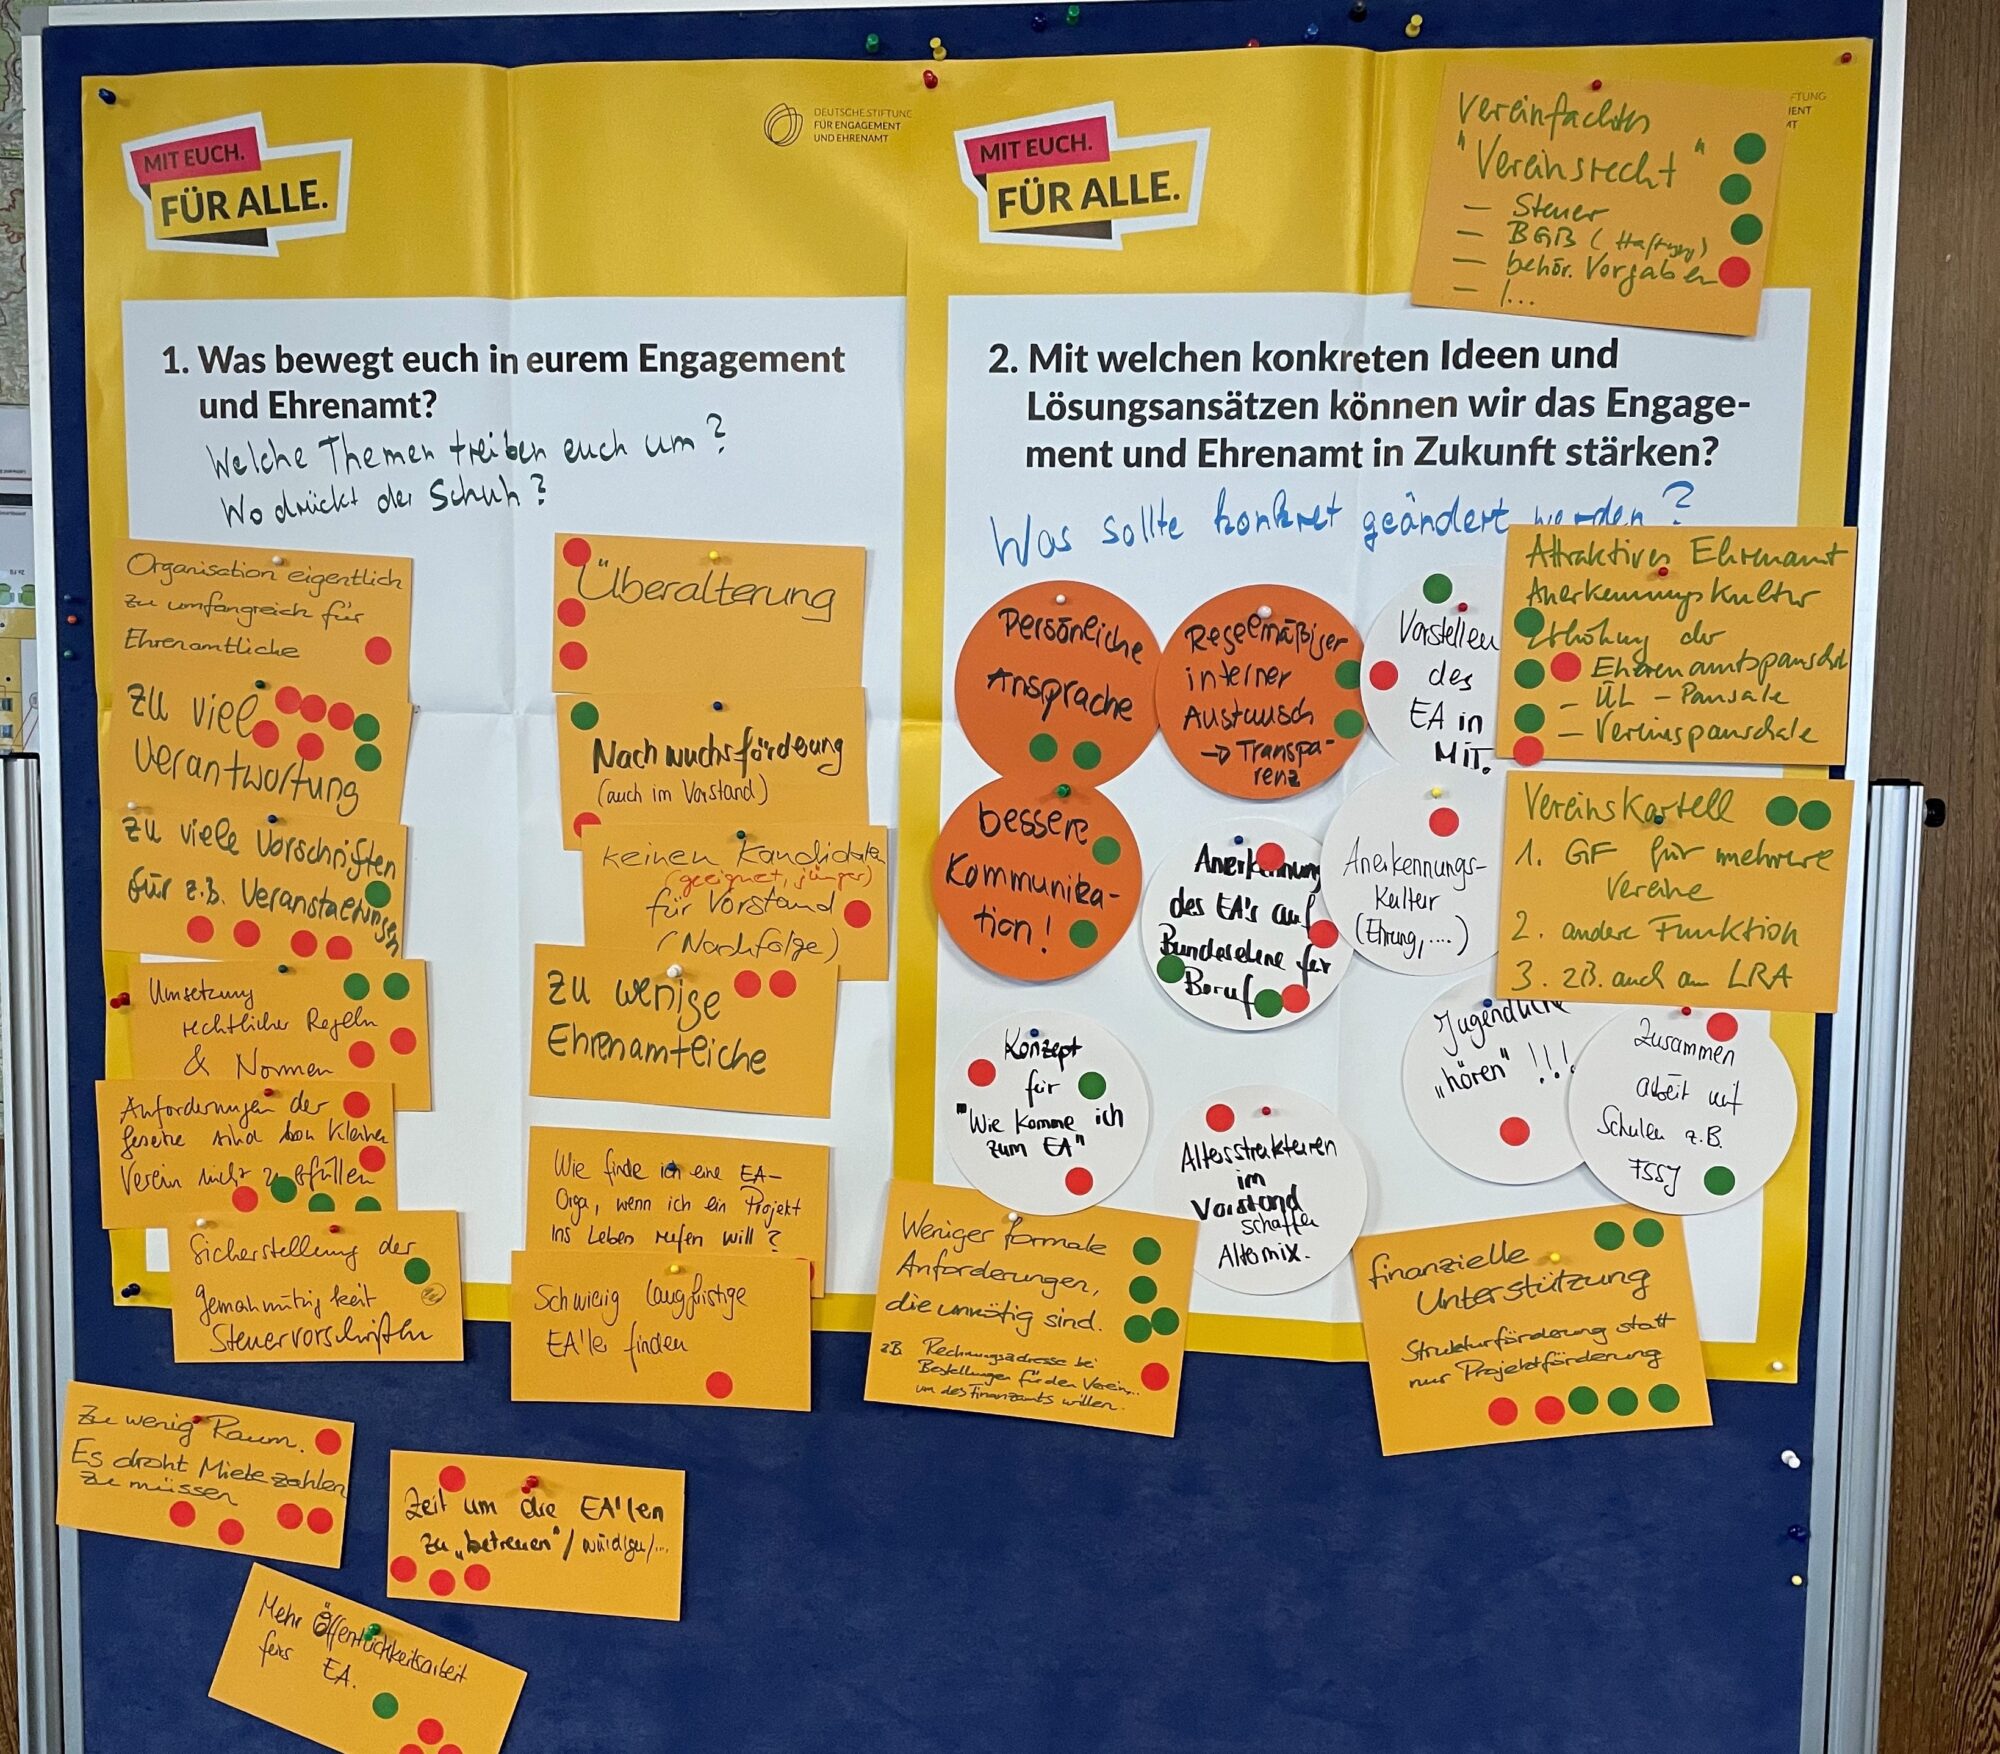 DEUTSCHE STIFTUNG
FÜR ENGAGEMENT
UND EHRENAMT
MIT EUCH.
FÜR ALLE.
1. Was bewegt euch in eurem Engagement
und Ehrenamt?
Welche Themen treiben euch um?
Wo drückt der Schuh?
Organisation eigentlich
zu umfangreich für
Ehrenamtliche
zu viel
Verantwortung
zu viele Vorschriften
für z.B. Veranstaltungen
Umsetzung
rechtlicher Regeln
& Normen
Anforderungen der
Gesetze sind von kleinen
Verein nicht zu erfüllen
Sicherstellung der
Steuervorschriften
Zu wenig Raum.
Es droht Miete zahlen
zu müssen
Überalterung
Nachwuchsförderung
(auch im Vorstand)
keinen Kandidaten
(geeignet, jünger)
für Vorstand
(Nachfolge)
zu wenige
Ehrenamtliche
Wie finde ich eine EA-
Orga, wenn ich ein Projekt
ins Leben rufen will?
Schwierig langfristige
EA'ler finden
Zeit um die EA'len
zu „betreuen"/würdigen/...
Mehr Öffentlichkeitsarbeit
fürs EA.
MIT EUCH.
FÜR ALLE.
FTUNG
MENT
MT
Vereinfachtes
"Vereinsrecht"
- Steuer
- BGB (Haftung)
- behör. Vorgaben
- /...
2. Mit welchen konkreten Ideen und
Lösungsansätzen können wir das Engage-
ment und Ehrenamt in Zukunft stärken?
Was sollte konkret geändert werden?
Persönliche
Ansprache
Regelmäßiger
interner
Austausch
→ Transpa-
renz
Vorstellen
des
EA in
MIT.
Attraktives Ehrenamt
Anerkennungskultur
Erhöhung der
Ehrenamtspauschale
- ÜL - Pausale
- Vereinspauschale
bessere
Kommunika-
tion!
Anerkennung
des EA's auf
Bundesebene für
Beruf
Anerkennungs-
kultur
(Ehrung,....)
Vereinskartell
1. GF für mehrere
Vereine
2. andere Funktion
3. z.B. auch am LRA
Konzept
für
"Wie komme ich
zum EA"
Altersstrukturen
im
Vorstand
schaffen
Altomix.
Jugendliche
„hören" !!!
Zusammen
arbeit mit
Schulen z.B.
FSSJ
Weniger formale
Anforderungen,
die unnötig sind.
z.B. Rechnungsadresse bei
Bestellungen für den Verein...
um des Finanzamts willen.
finanzielle
Unterstützung
Strukturförderung statt
nur Projektförderung